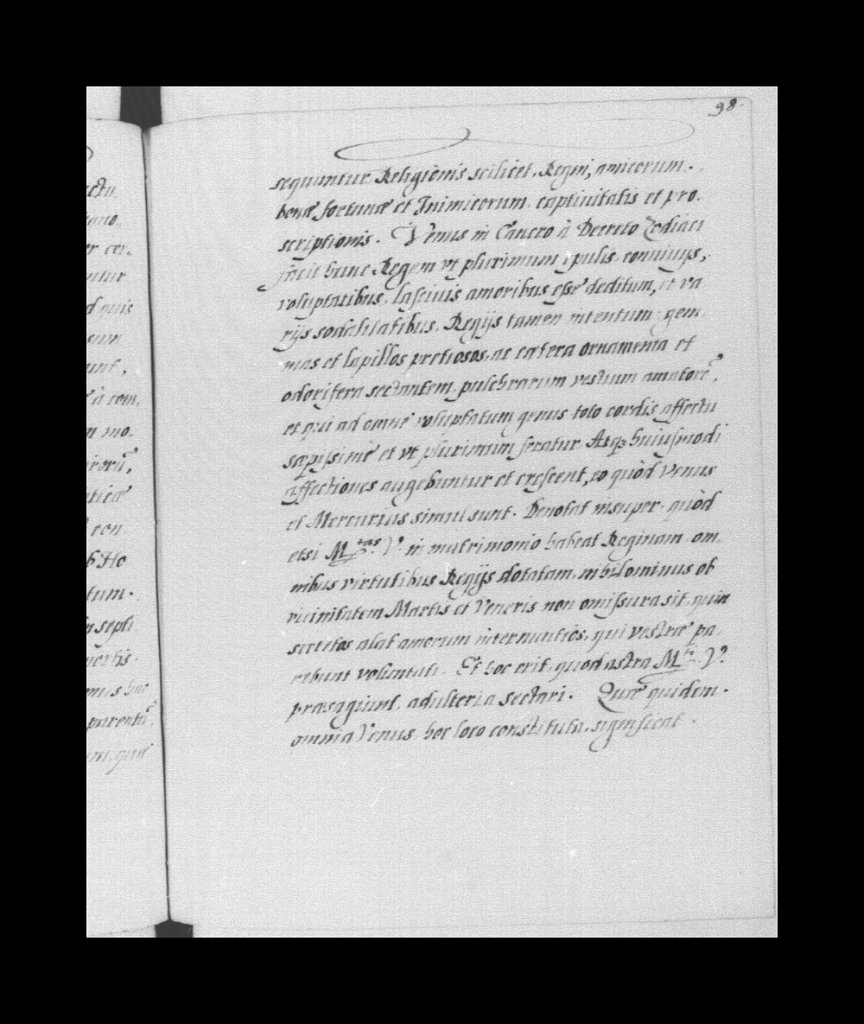 98.
sequuntur Religionis scilicet, Regni, amicorum.
bonæ fortunæ et Inimicorum, captivitatis et pro.
scriptionis. Venus in Cancro à Decreto Zodiaci
facit hunc Regem vt plurimum, epulis conuiuijs,
voluptatibus, lasciuis amoribus esse deditum, et va
rijs sodalitatibus, Regijs tamen intentum gem
mas et lapillos pretiosos, ac cætera ornamenta et
odorifera sectantem, pulchrarum vestium amatorē,
et qui ad omne voluptatum genus toto cordis affectu
sæpissime et vt plurimum feratur Atq; huiusmodi
affectiones augebuntur et crescent, eo quòd Venus
et Mercurius simul sunt. Denotat insuper, quòd
etsi M.tas V.ª in matrimonio habeat Reginam om.
nibus virtutibus Regijs dotatam, nihilominus ob
vicinitatem Martis et Veneris non omissura sit, quin
secretos alat amorum internuntios, qui vestræ pa.
rebunt voluntati. Et hoc erit, quod astra M.ti V.ª
præsagiunt, adulteria sectari. Quæ quidem.
omnia Venus hoc loco constituta, significat.
ectu
er cer.
untur
d quis
sunt,
è à com.
n mo.
con
tum.
septi
mortis.
parentū,